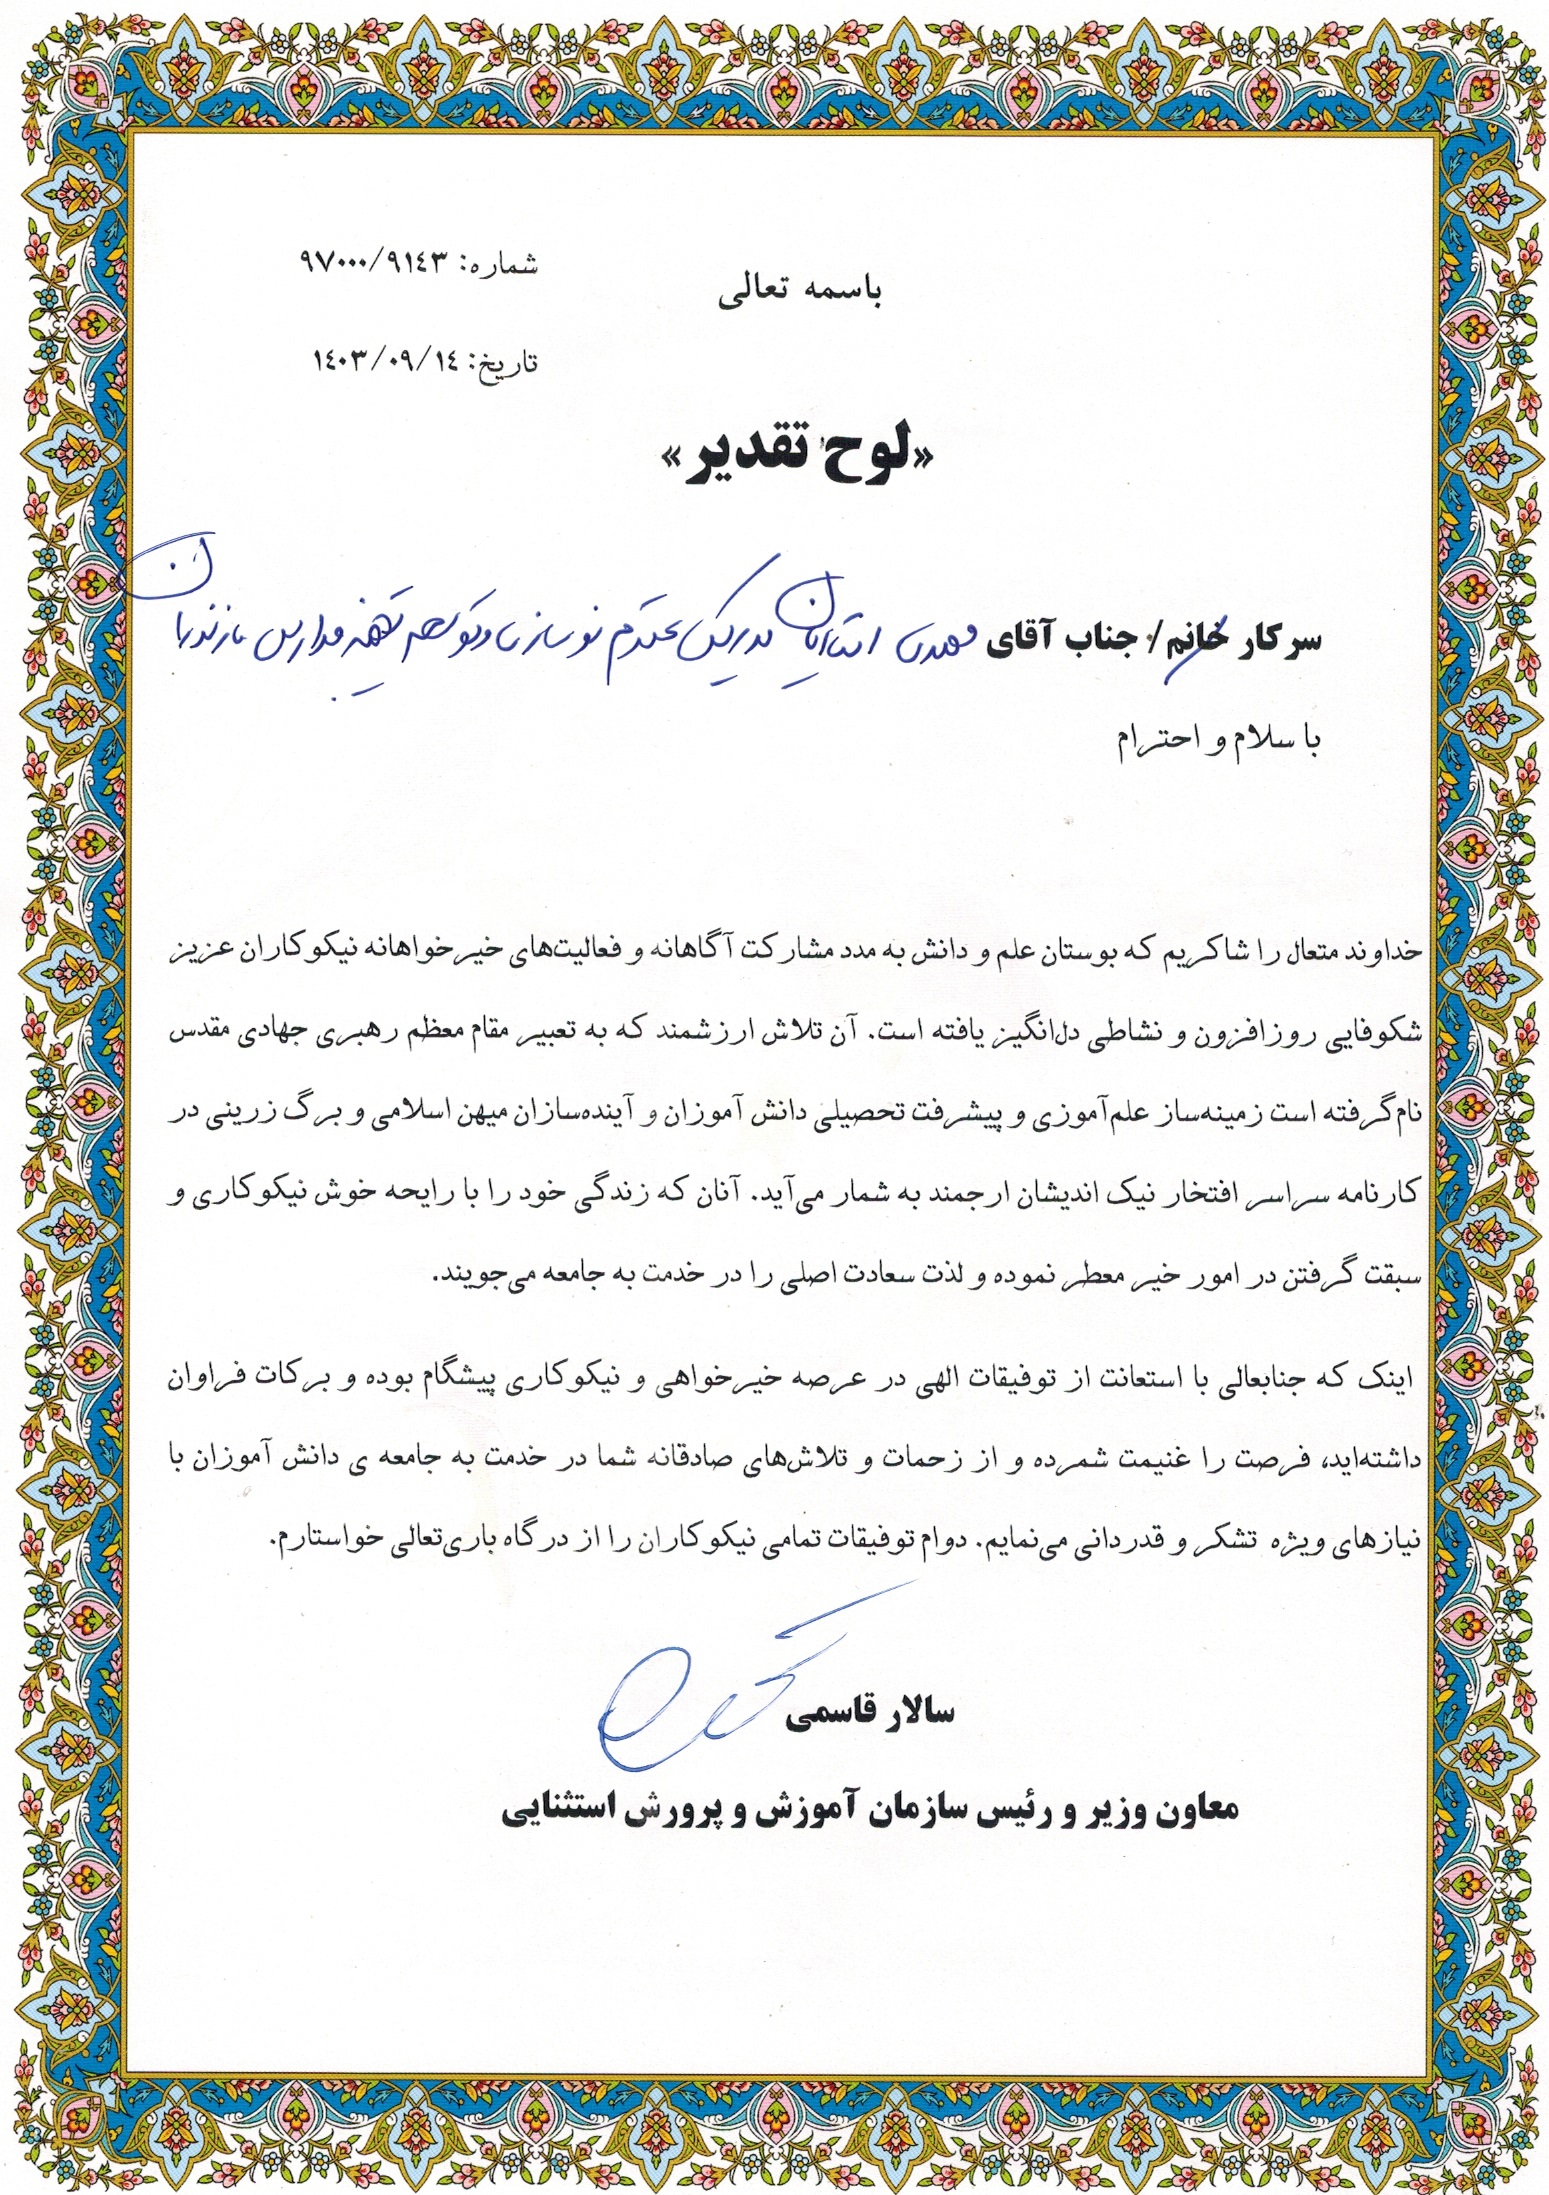 شماره: ۹۷۰۰۰/۹۱٤۳
باسمه تعالی
تاریخ: ۱٤۰۳/۰۹/۱٤
«لوح تقدیر»
سرکار خانم/ جناب آقای مهدی مدیرکل محترم نوسازی و توسعه تجهیز مدارس مازندران
با سلام و احترام
خداوند متعال را شاکریم که بوستان علم و دانش به مدد مشارکت آگاهانه و فعالیت‌های خیرخواهانه نیکوکاران عزیز
شکوفایی روزافزون و نشاطی دل‌انگیز یافته است. آن تلاش ارزشمند که به تعبیر مقام معظم رهبری جهادی مقدس
نام‌گرفته است زمینه‌ساز علم‌آموزی و پیشرفت تحصیلی دانش آموزان و آینده‌سازان میهن اسلامی و برگ زرینی در
کارنامه سراسر افتخار نیک اندیشان ارجمند به شمار می‌آید. آنان که زندگی خود را با رایحه خوش نیکوکاری و
سبقت گرفتن در امور خیر معطر نموده و لذت سعادت اصلی را در خدمت به جامعه می‌جویند.
اینک که جنابعالی با استعانت از توفیقات الهی در عرصه خیرخواهی و نیکوکاری پیشگام بوده و برکات فراوان
داشته‌اید، فرصت را غنیمت شمرده و از زحمات و تلاش‌های صادقانه شما در خدمت به جامعه ی دانش آموزان با
نیازهای ویژه تشکر و قدردانی می‌نمایم. دوام توفیقات تمامی نیکوکاران را از درگاه باری‌تعالی خواستارم.
سالار قاسمی
معاون وزیر و رئیس سازمان آموزش و پرورش استثنایی